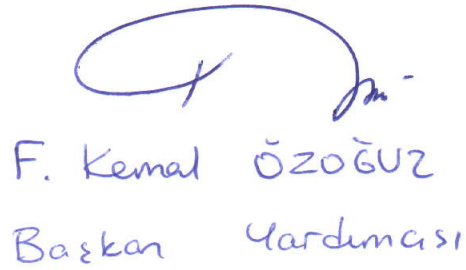 F. Kemal ÖZOĞUZ
Başkan Yardımcısı